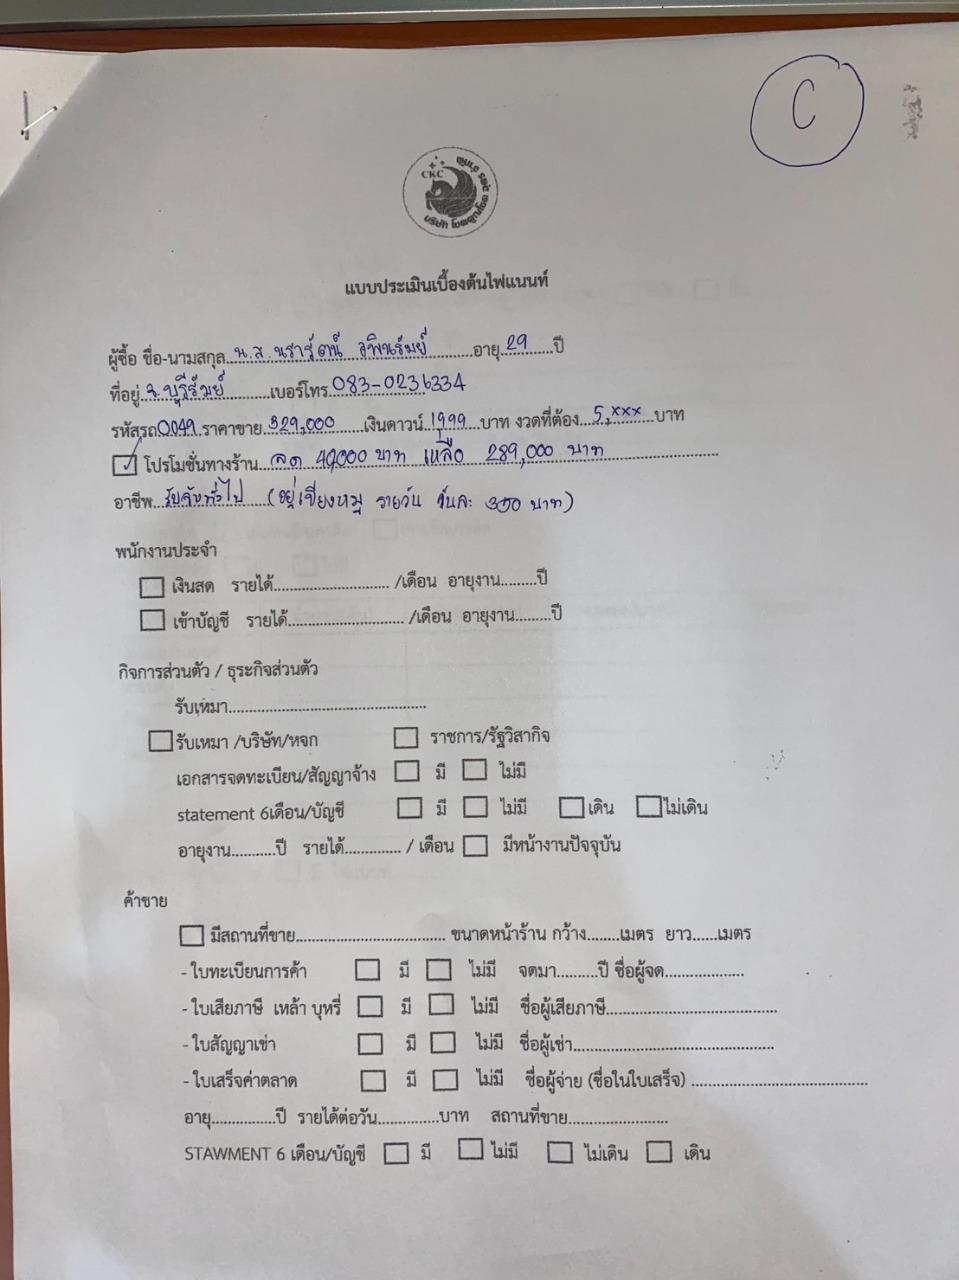 C
CKC
บริษัท โชคคูณโชค
แบบประเมินเบื้องต้นไฟแนนท์
ผู้ซื้อ ชื่อ-นามสกุล น.ส. นรารัตน์ อายุ 29 ปี
ที่อยู่ จ.บุรีรัมย์ เบอร์โทร 083-0236334
รหัสรถ 0049 ราคาขาย 329,000 เงินดาวน์ 1999 บาท งวดที่ต้อง 5,xxx บาท
โปรโมชั่นทางร้าน ลด 40,000 บาท เหลือ 289,000 บาท
อาชีพ รับจ้างทั่วไป (อยู่เขียงหมู รายวัน วันละ 350 บาท)
พนักงานประจำ
เงินสด รายได้............................ /เดือน อายุงาน.........ปี
เข้าบัญชี รายได้............................ /เดือน อายุงาน.........ปี
กิจการส่วนตัว / ธุระกิจส่วนตัว
รับเหมา.................................................
รับเหมา /บริษัท/หจก ราชการ/รัฐวิสากิจ
เอกสารจดทะเบียน/สัญญาจ้าง มี ไม่มี
statement 6เดือน/บัญชี มี ไม่มี เดิน ไม่เดิน
อายุงาน...........ปี รายได้.............. / เดือน มีหน้างานปัจจุบัน
ค้าขาย
มีสถานที่ขาย..................................... ขนาดหน้าร้าน กว้าง........เมตร ยาว......เมตร
- ใบทะเบียนการค้า มี ไม่มี จตมา..........ปี ชื่อผู้จด....................
- ใบเสียภาษี เหล้า บุหรี่ มี ไม่มี ชื่อผู้เสียภาษี..........................................
- ใบสัญญาเช่า มี ไม่มี ชื่อผู้เช่า..................................................
- ใบเสร็จค่าตลาด มี ไม่มี ชื่อผู้จ่าย (ชื่อในใบเสร็จ) ............................................
อายุ...............ปี รายได้ต่อวัน...............บาท สถานที่ขาย........................
STAWMENT 6 เดือน/บัญชี มี ไม่มี ไม่เดิน เดิน